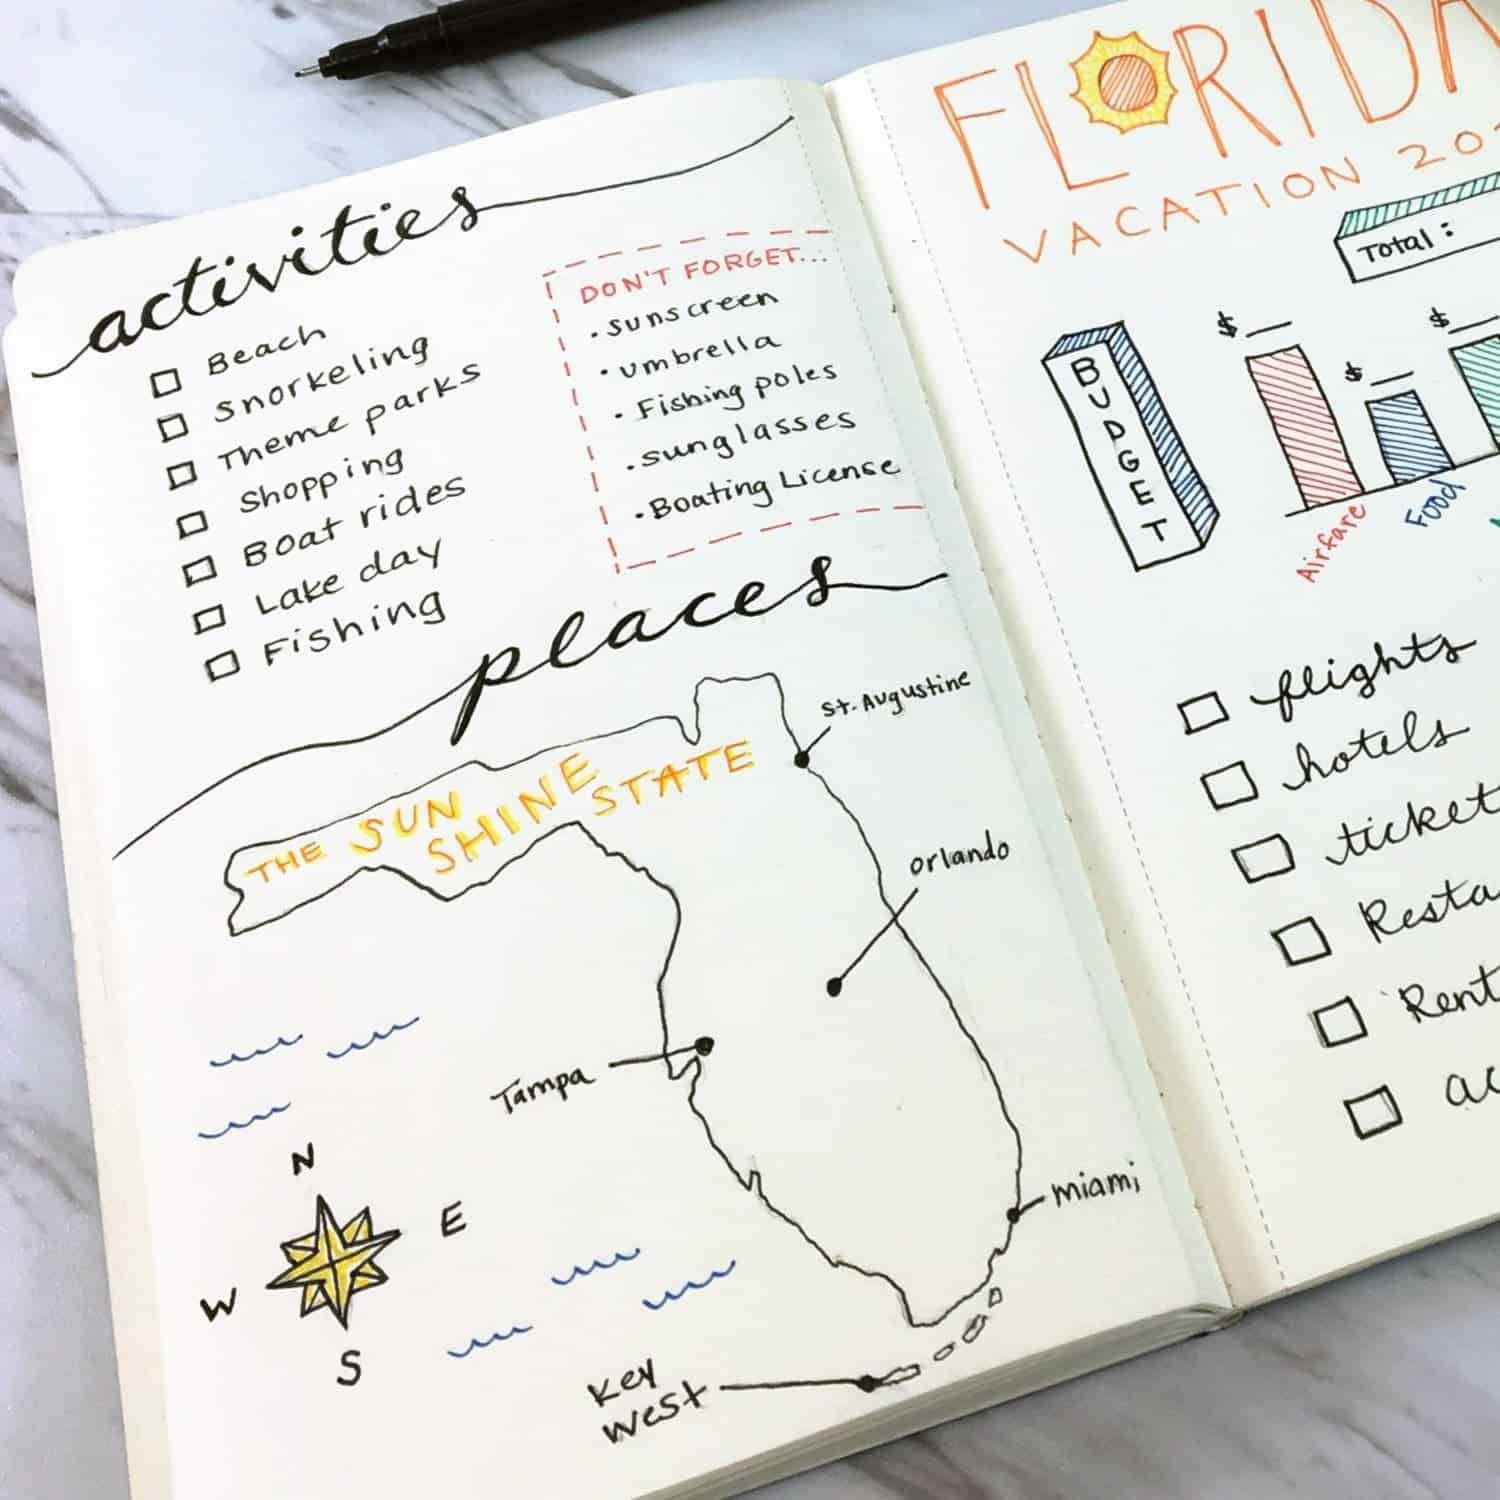 activities
Beach
Snorkeling
Theme parks
Shopping
Boat rides
Lake day
Fishing
DON'T FORGET...
• sunscreen
• umbrella
• Fishing poles
• sunglasses
• Boating License
places
THE SUN
SHINE STATE
St. Augustine
Orlando
Tampa
Miami
Key
West
N
E
W
S
FLORIDA
VACATION
Total:
BUDGET
$
$
$
Airfare
Food
flights
hotels